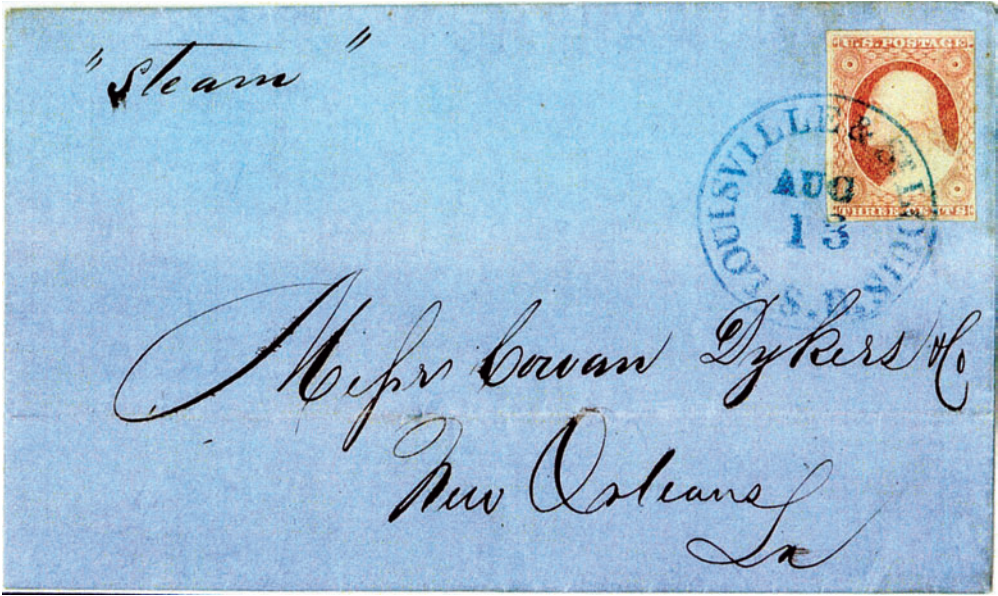 "Steam"
U.S. POSTAGE
THREE CENTS
LOUISVILLE & ST LOUIS
AUG
13
S.B.
Messrs Cowan Dykers & Co
New Orleans
La